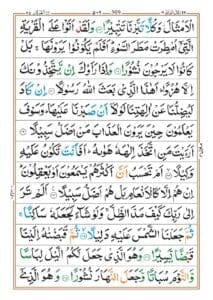 الْاَمْثَالَ وَكُلًّا تَبَّرْنَا تَتْبِيْرًا وَلَقَدْ اَتَوْا عَلَى الْقَرْيَةِ
الَّتِيْٓ اُمْطِرَتْ مَطَرَ السَّوْءِ اَفَلَمْ يَكُوْنُوْا يَرَوْنَهَا بَلْ
كَانُوْا لَا يَرْجُوْنَ نُشُوْرًا وَاِذَا رَاَوْكَ اِنْ يَّتَّخِذُوْنَكَ
اِلَّا هُزُوًا اَهٰذَا الَّذِيْ بَعَثَ اللّٰهُ رَسُوْلًا اِنْ كَادَ
لَيُضِلُّنَا عَنْ اٰلِهَتِنَا لَوْلَآ اَنْ صَبَرْنَا عَلَيْهَا وَسَوْفَ
يَعْلَمُوْنَ حِيْنَ يَرَوْنَ الْعَذَابَ مَنْ اَضَلُّ سَبِيْلًا
اَرَءَيْتَ مَنِ اتَّخَذَ اِلٰهَهٗ هَوٰىهُ اَفَاَنْتَ تَكُوْنُ عَلَيْهِ
وَكِيْلًا اَمْ تَحْسَبُ اَنَّ اَكْثَرَهُمْ يَسْمَعُوْنَ اَوْ يَعْقِلُوْنَ
اِنْ هُمْ اِلَّا كَالْاَنْعَامِ بَلْ هُمْ اَضَلُّ سَبِيْلًا اَلَمْ تَرَ
اِلٰى رَبِّكَ كَيْفَ مَدَّ الظِّلَّ وَلَوْ شَآءَ لَجَعَلَهٗ سَاكِنًا
ثُمَّ جَعَلْنَا الشَّمْسَ عَلَيْهِ دَلِيْلًا ثُمَّ قَبَضْنٰهُ اِلَيْنَا
قَبْضًا يَّسِيْرًا وَهُوَ الَّذِيْ جَعَلَ لَكُمُ الَّيْلَ لِبَاسًا
وَّالنَّوْمَ سُبَاتًا وَّجَعَلَ النَّهَارَ نُشُوْرًا وَهُوَ الَّذِيْٓ